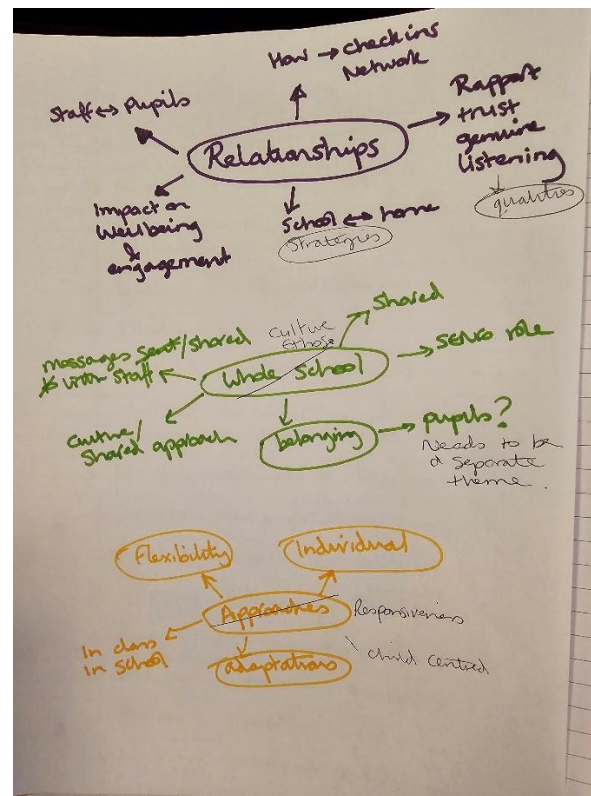 How → check ins
Network
Staff ↔ Pupils
Rapport
trust
genuine
listening
qualities
Relationships
Impact on
Wellbeing
&
engagement
School ↔ home
Strategies
Shared
culture
Ethos
messages sent/shared
with staff
Whole School
SENCO role
culture/
Shared approach
belonging
pupils?
Needs to be
a separate
theme.
Flexibility
Individual
Approaches
Responsiveness
In class
in school
adaptations
child centred